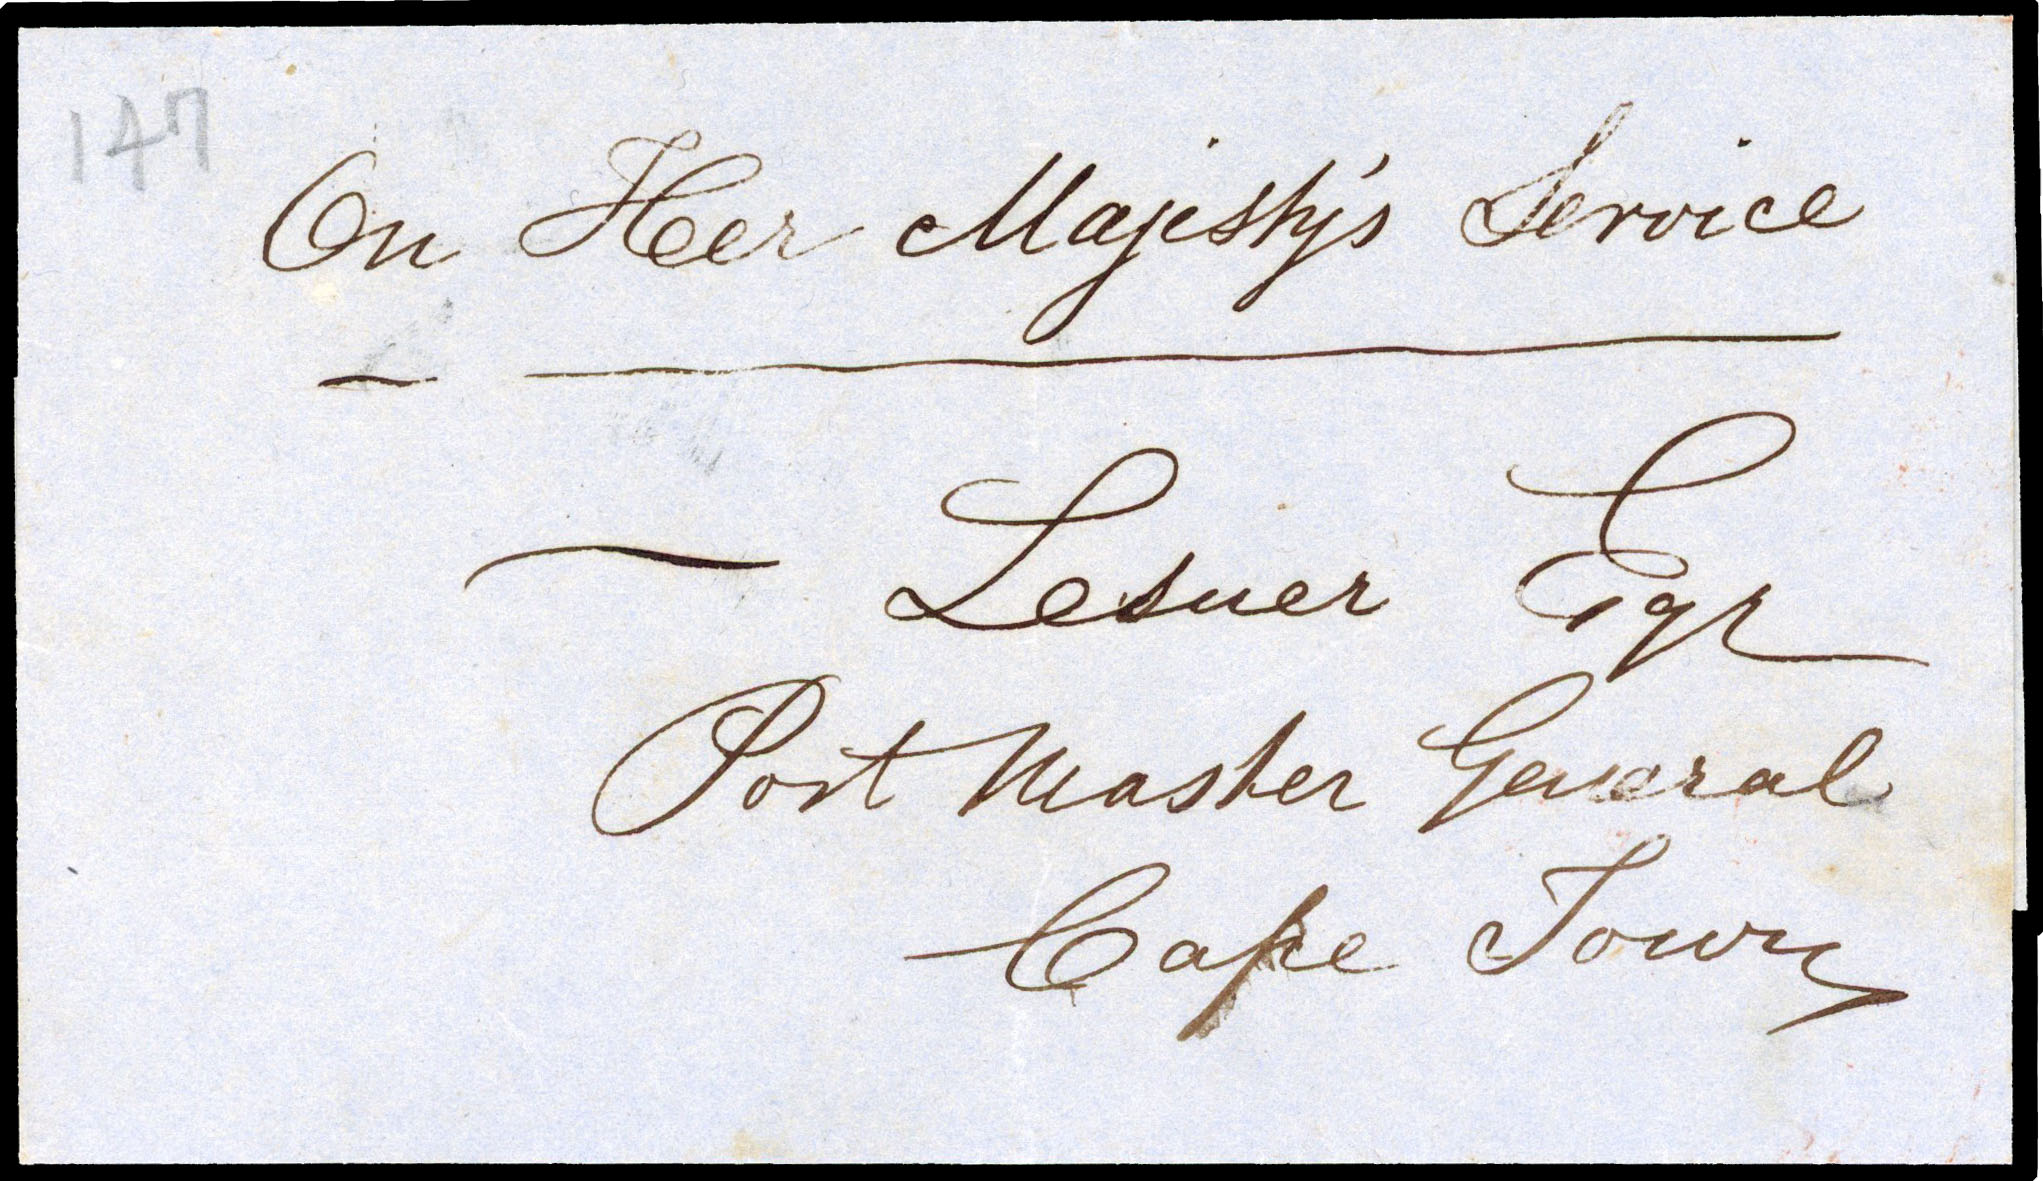 147
On Her Majesty's Service
— Lesuer Esqr
Post Master General
Cape Town